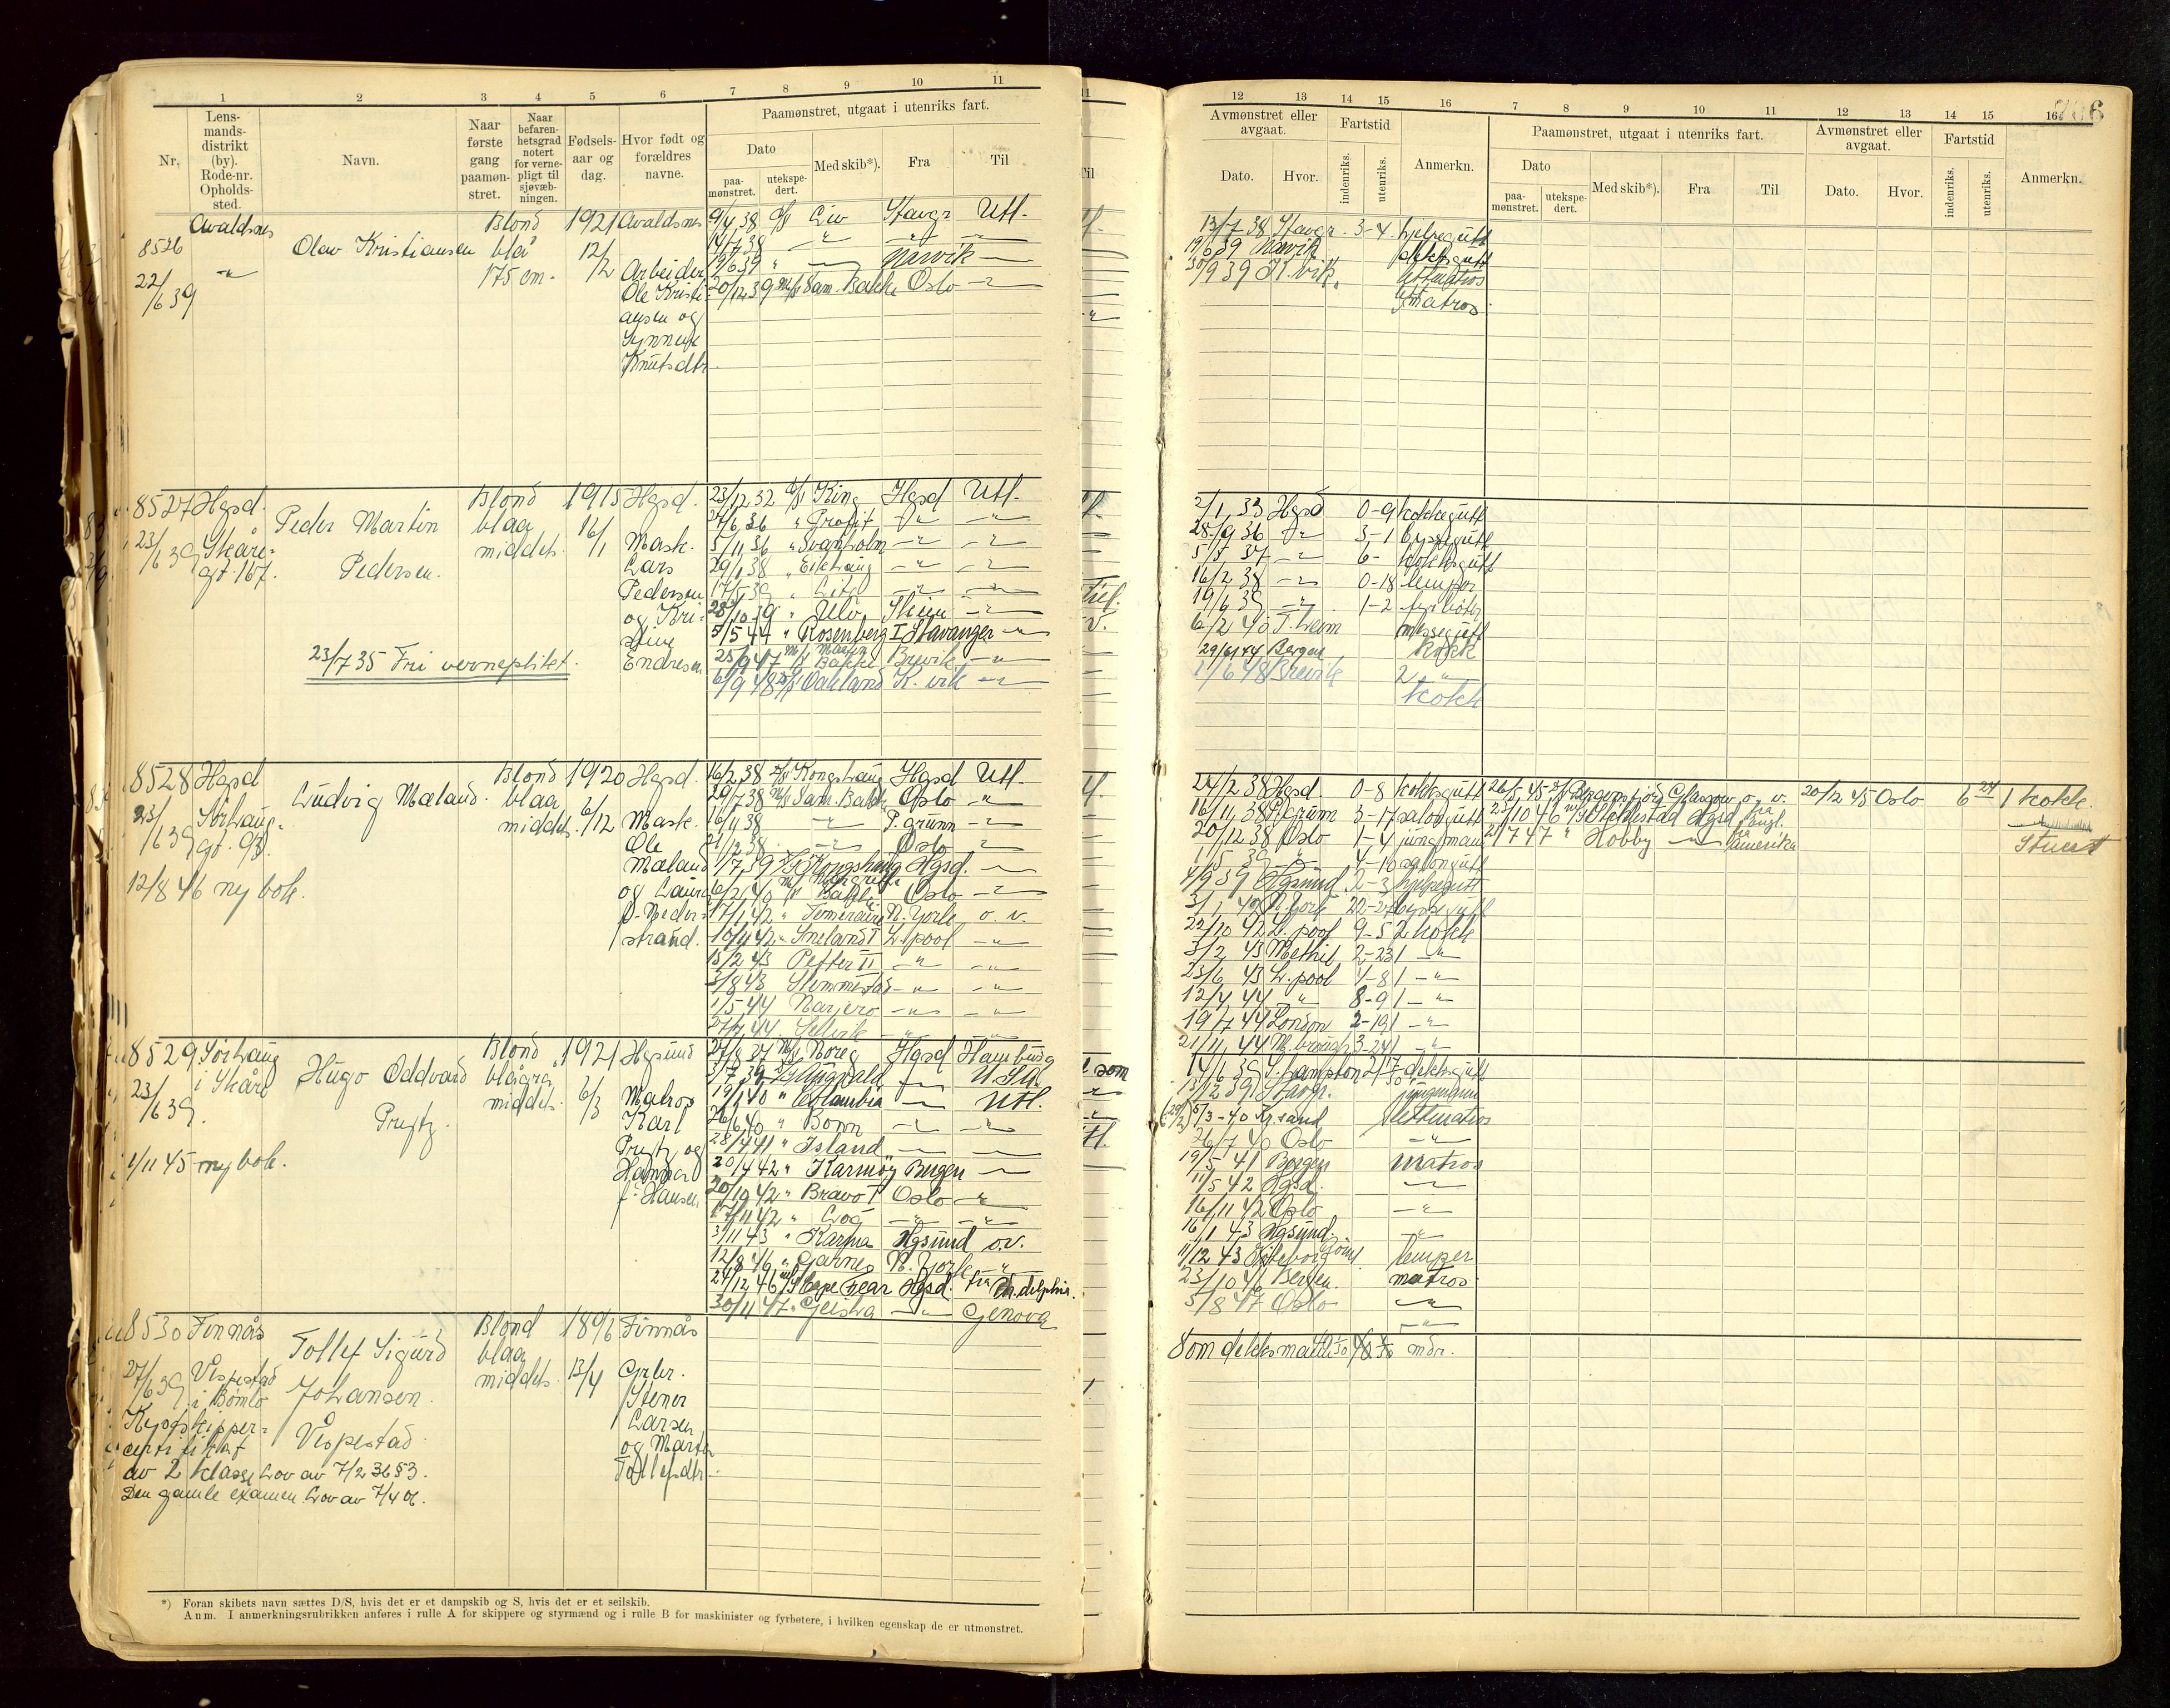 1 2 3 4 5 6 7 8 9 10 11
Nr.
Lens-
mands-
distrikt
(by).
Rode-nr.
Opholds-
sted.
Navn.
Naar
første
gang
paamøn-
stret.
Naar
befaren-
hetsgrad
notert
for verne-
pligt til
sjøvæb-
ningen.
Fødsels-
aar og
dag.
Hvor født og
forældres
navne.
Paamønstret, utgaat i utenriks fart.
Dato
paa-
mønstret.
utekspe-
dert.
Med skib*).
Fra
Til
8526
Avaldsnes
22/6 39
Olav Kristiansen
Blond
blå
175 cm.
1921
12/2
Avaldsnes
Arbeider
Ole Kristi-
ansen og
Synnøve
Knutsdtr.
9/4 38 Liv Stavgr Utl.
14/7 38 -"- -"-
19/6 39 " Narvik
20/12 39 M/S Sam. Bakke Oslo
8527 Hgsd.
23/6 39 Skåre-
gt. 167.
Peder Martin
Pedersen.
23/7 35 Fri verneplikt.
Blond
blaa
middels.
1915
16/1
Hgsd.
Mask.
Lars
Pedersen
og Kri-
stine
Endresen
23/12 32 D/S King Hgsd Utl.
27/6 36 " Profit -"- -"-
5/11 36 " Svanholm -"- -"-
29/1 38 " Eikhaug -"- -"-
17/5 39 " -"- -"-
28/10 39 " Ulv Skien -"-
5/5 44 " Rosenberg I Stavanger -"-
25/9 47 M/S Martin Bakke Brevik -"-
6/9 48 D/S Oakland K. vik -"-
8528 Hgsd
23/6 39 Sørhaug-
gt. 93.
12/8 46 ny bok.
Ludvig Mæland.
Blond
blaa
middels.
1920
6/12
Hgsd.
Mask.
Ole
Mæland
og Laura
f. Neder-
strand.
16/2 38 D/S Kongshaug Hgsd Utl.
29/7 38 M/S Sam. Bakke Oslo -"-
16/11 38 -"- P. grunn -"-
21/12 38 -"- Oslo -"-
1/7 39 D/S Kongshaug Hgsd.
6/2 40 M/S Bakke Oslo -"-
17/1 42 " Temeraire N. York o. v.
10/11 42 " Sneland I L. pool -"-
15/2 43 Petter II -"- -"-
3/8 43 Slemmestad -"- -"-
1/5 44 Marjero -"- -"-
27/7 44 Selvik -"- -"-
8529 Sørhaug
i Skåre
23/6 39.
1/11 45 ny bok.
Hugo Oddvard
Prytz.
Blond
blågrå
middels.
1921
6/3
Hgsund
Matros
Karl
Prytz og
f. Hansen
27/8 37 M/S Noreg Hgsd Hamburg
3/7 39 D/S Augvald -"- U.S.A.
19/1 40 " Columbia -"- Utl.
26/6 40 " Bonn -"- -"-
28/4 41 " Island -"- -"-
20/4 42 " Karmøy Bergen -"-
20/10 42 " Bravo I Oslo -"-
17/11 42 " Log -"- -"-
3/11 43 " Karma Hgsund o.v.
12/8 46 " Gjarnes N. York -"-
24/12 46 M/S Cape Fear Hgsd. fra Philadelphia.
30/11 47 " Geisha -"- Genova
8530 Finnås
27/6 39 Vispestad
i Bømlo
Kystskipper-
certifikat
av 2 klasse Lov av 7/2 36 § 3.
Den gamle examen Lov av 7/4 06.
Tollef Sigurd
Johansen
Vespestad
Blond
blaa
middels
1896
13/4
Finnås
Grbr.
Stener
Larsen
og Marta
Tollefsdtr.
*) Foran skibets navn sættes D/S, hvis det er et dampskib og S, hvis det er et seilskib.
Anm. I anmerkningsrubrikken anføres i rulle A for skippere og styrmænd og i rulle B for maskinister og fyrbøtere, i hvilken egenskap de er utmønstret.
12 13 14 15 16 7 8 9 10 11 12 13 14 15 16
Avmønstret eller
avgaat.
Dato.
Hvor.
Fartstid
indenriks.
utenriks.
Anmerkn.
Paamønstret, utgaat i utenriks fart.
Dato
paa-
mønstret.
utekspe-
dert.
Med skib*).
Fra
Til
Avmønstret eller
avgaat.
Dato.
Hvor.
Fartstid
indenriks.
utenriks.
Anmerkn.
13/7 38 Stavgr. 3-4 hjelpegutt
19/6 39 Narvik dekksgutt
30/9 39 K. vik. lettmatros
matros
2/1 33 Hgsd 0-9 kokkegutt
28/9 36 -"- 3-1 byssegutt
5/5 37 -"- 6- kokksgutt
16/2 38 -"- 0-18 lemper
19/6 39 -"- 1-2 fyrbøter
6/2 40 T. heim messegutt
29/6 44 Bergen kokk
1/6 48 Brevik 2 -"-
kokk
24/2 38 Hgsd. 0-8 kokksgutt 26/5 45 D/S Bravnsfjord Glasgow o. v. 20/12 45 Oslo 6 24 1 kokk.
16/11 38 P. grunn 3-17 salongutt 25/10 46 M/S Heldestad Hgsd fra Engl.
20/12 38 Oslo 1-4 jungmann 21/7 47 " Hobby -"- fra Amerika Stuert
1/5 39 -"- 4-10 salongutt
4/9 39 Hgsund 2-3 hjelpegutt
3/1 42 N. York 22-27 byssegutt
22/10 42 L. pool 9-5 2 kokk
3/2 43 Methil 2-23 1 -"-
23/6 43 L. pool 4-8 1 -"-
12/4 44 " 8-9 1 -"-
19/7 44 London 2-19 1 -"-
21/11 44 M. brough 3-24 1 -"-
14/6 39 S. hampton dekksgutt
13/12 39 Stavgr. jungmann
5/3-40 Kr. sand lettmatros
26/7 40 Oslo -"-
19/5 41 Bergen matros
11/5 42 Hgsd. -"-
16/11 42 Oslo -"-
16/1 43 Hgsund -"-
11/12 43 Gøteborg rømt. lemper
23/10 46 Bergen matros
5/8 47 Oslo -"-
-"-
Som dekksmann mdr.